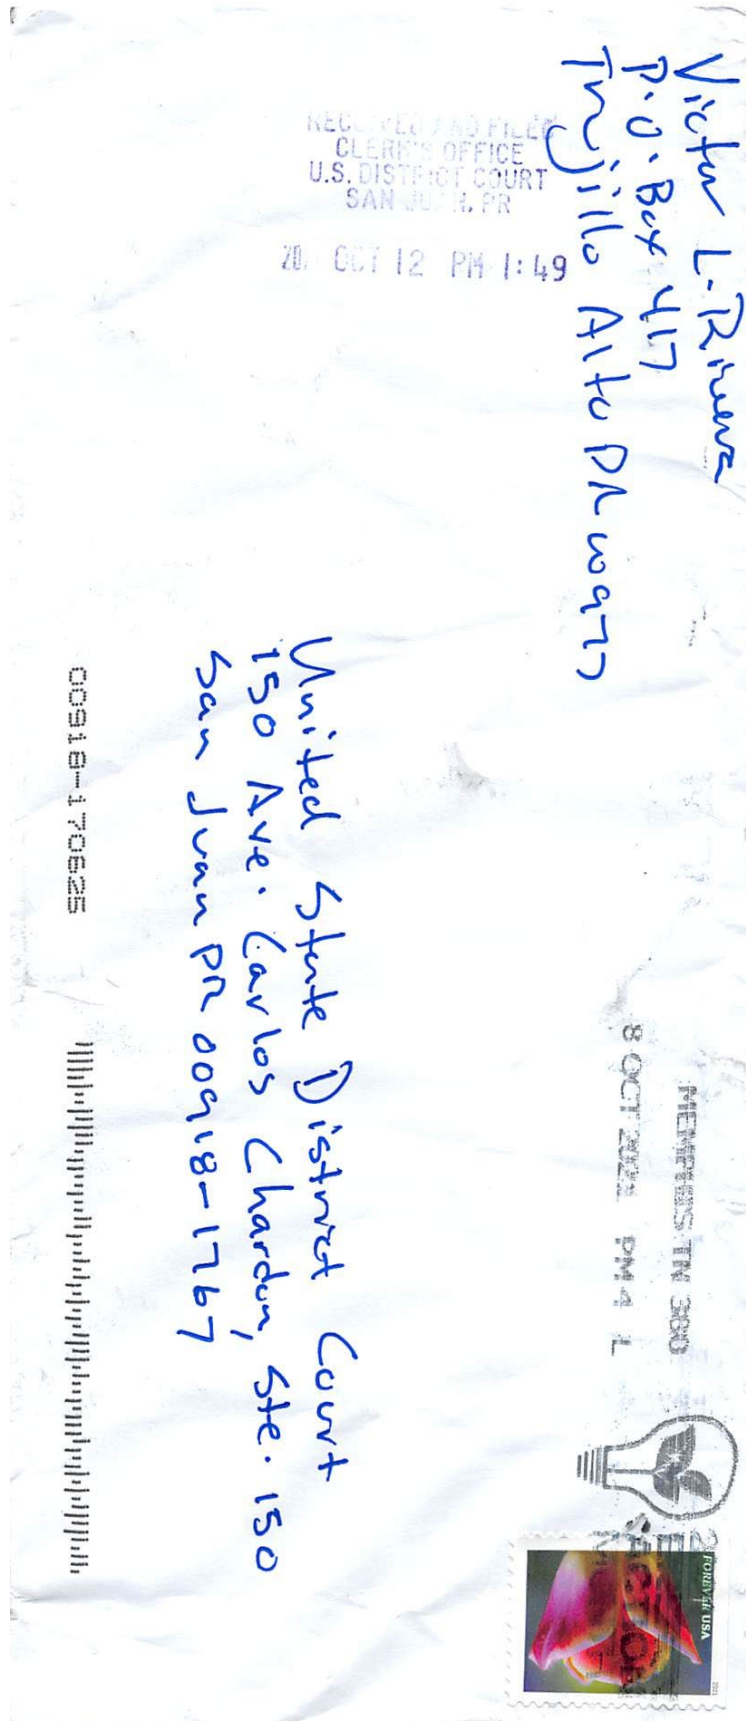 Victor L. Rivera
P.O. Box 417
Trujillo Alto PR 00977
RECEIVED AND FILED
CLERK'S OFFICE
U.S. DISTRICT COURT
SAN JUAN, PR
OCT 12 PM 1:49
MEMPHIS TN 380
8 OCT 2021 PM 4 L
FOREVER USA
United State District Court
150 Ave. Carlos Chardon, Ste. 150
San Juan PR 00918-1767
00918-170625